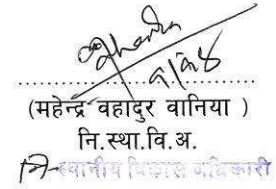 (महेन्द्र वहादुर वानिया )
नि.स्था.वि.अ.
नि-स्थानीय विकास अधिकारी